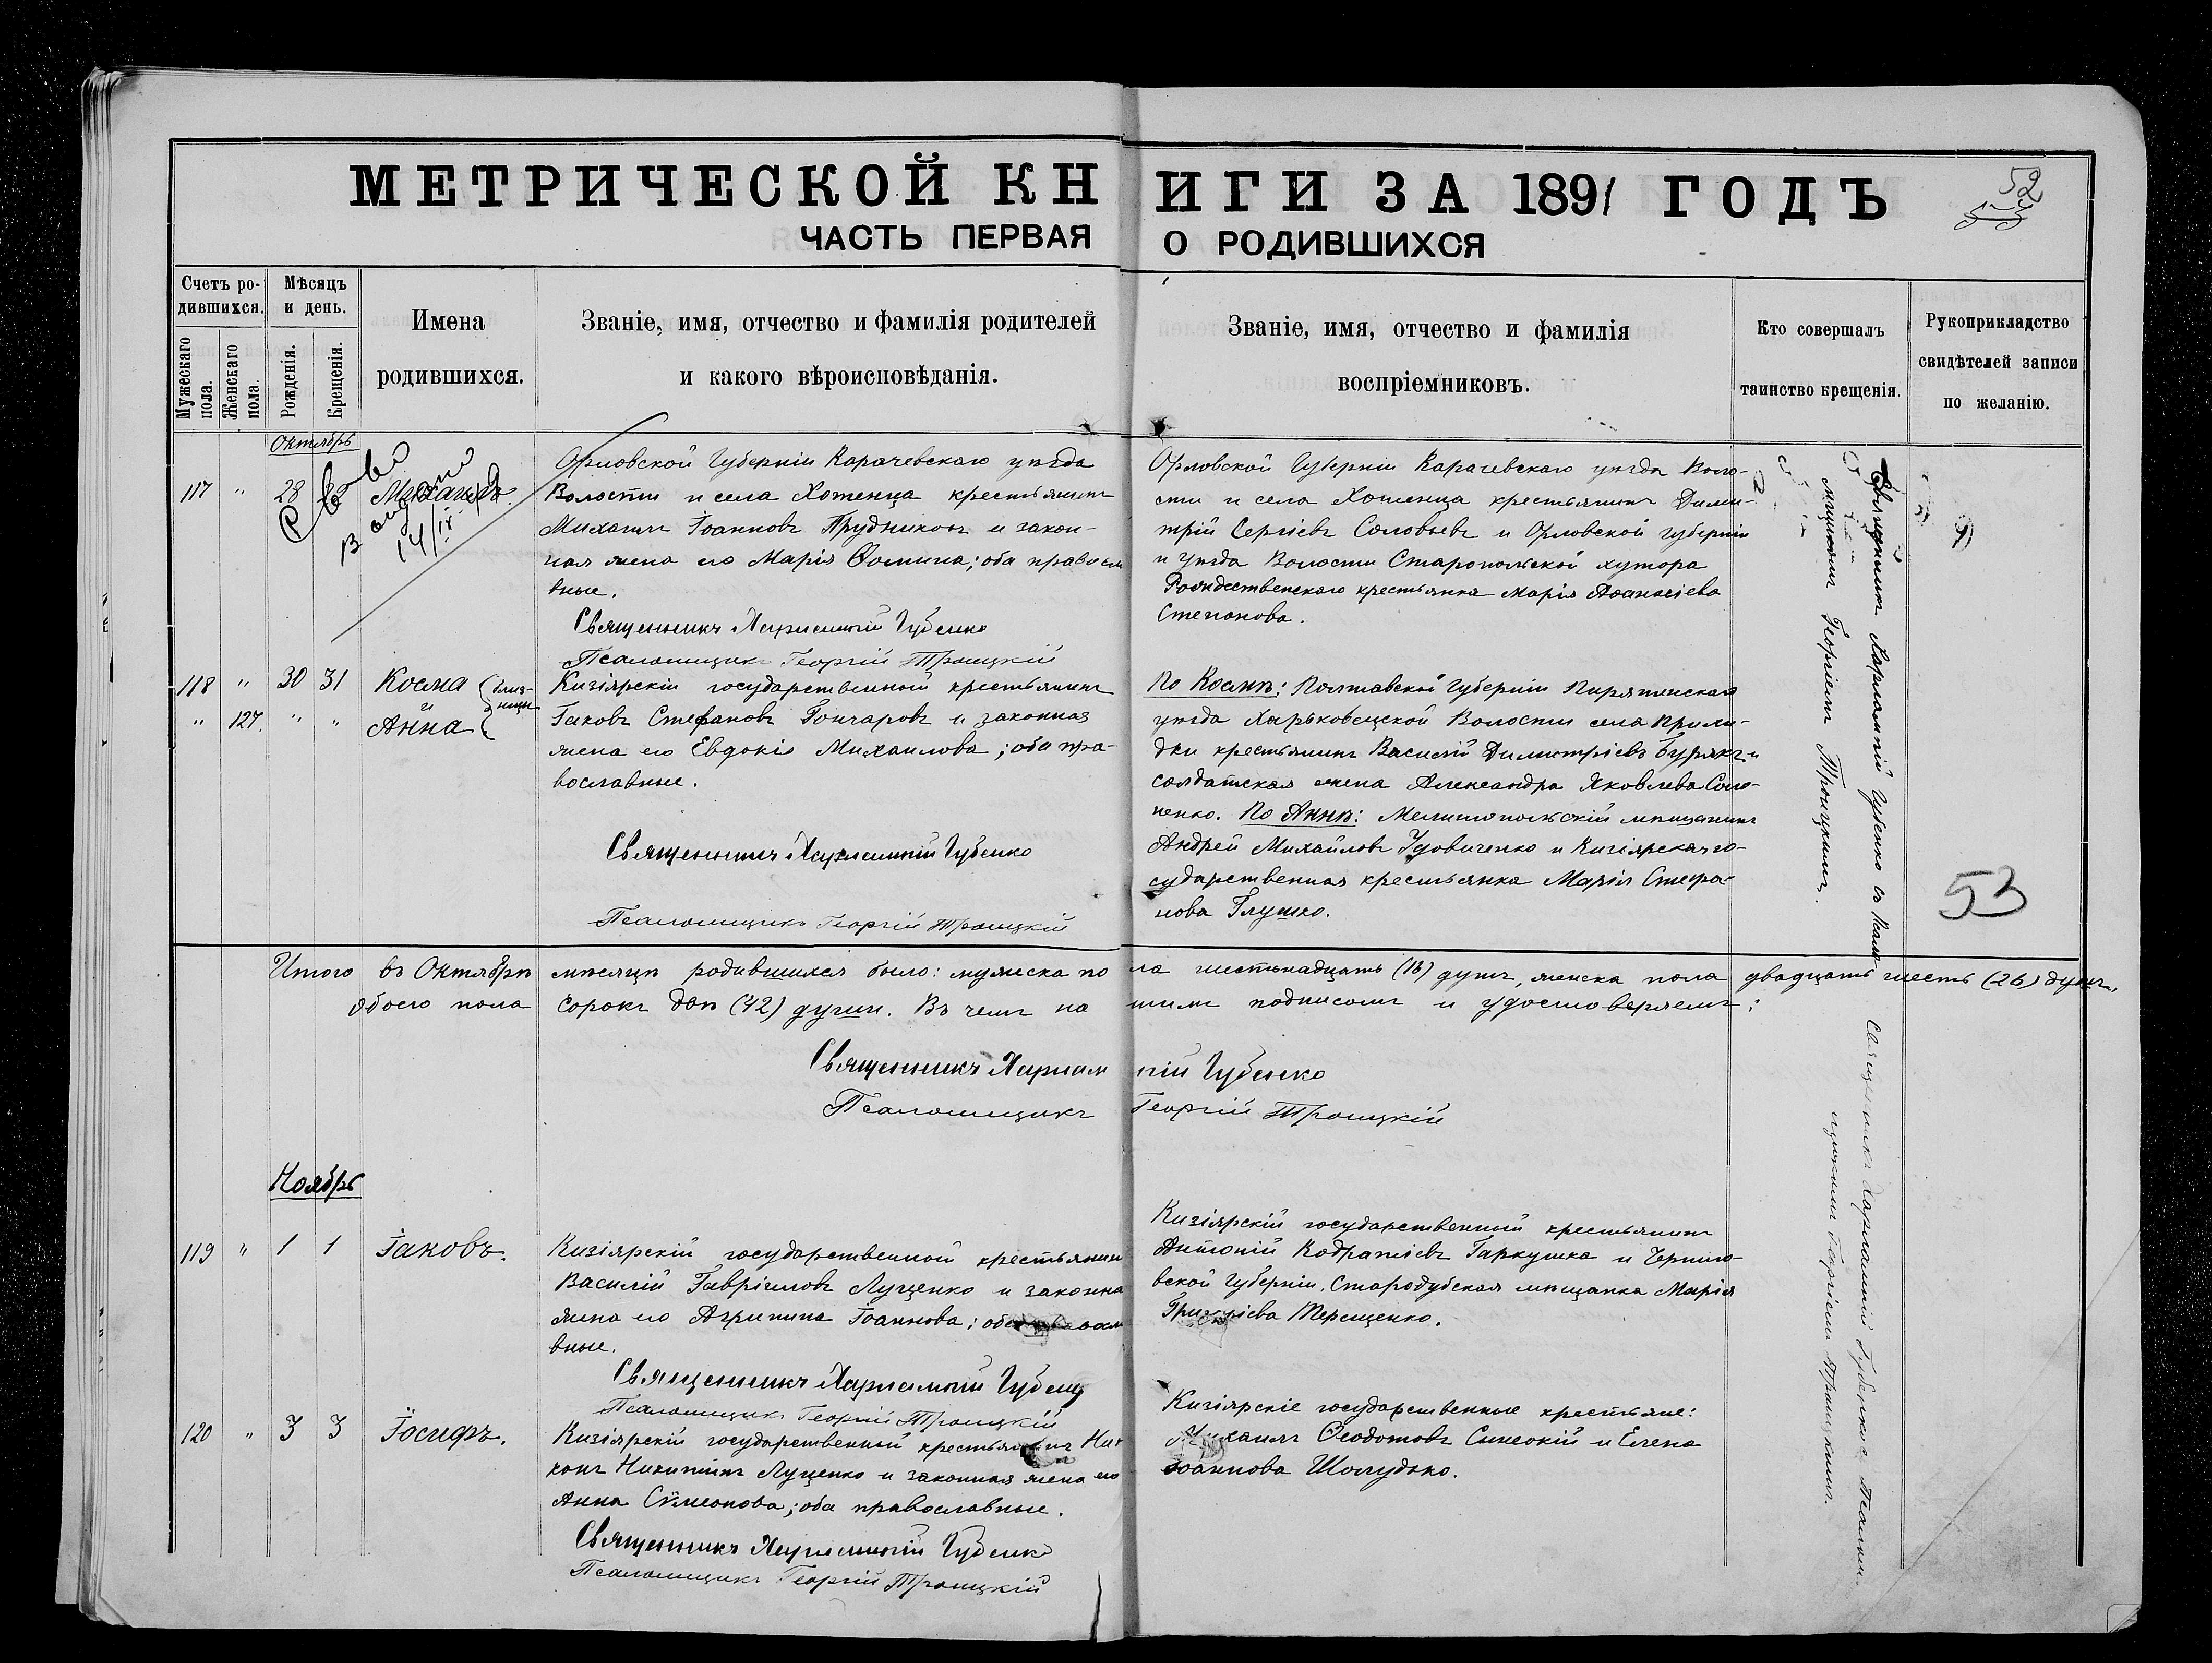 МЕТРИЧЕСКОЙ КНИГИ ЗА 1891 ГОДЪ
52
ЧАСТЬ ПЕРВАЯ О РОДИВШИХСЯ
Счетъ ро-
дившихся.
Мужескаго пола.
Женскаго пола.
Мѣсяцъ
и день.
Рожденія.
Крещенія.
Имена
родившихся.
Званіе, имя, отчество и фамилія родителей
и какого вѣроисповѣданія.
Званіе, имя, отчество и фамилія
воспріемниковъ.
Кто совершалъ
таинство крещенія.
Рукоприкладство
свидѣтелей записи
по желанію.
Октябрь
117 " 28 Михаилъ.
Орловской Губерніи Карачевскаго уѣзда
Волости и села Хотенца крестьянинъ
Михаилъ Іоанновъ Прудниковъ и закон-
ная жена его Марія Ѳомина; оба правосла
вные.
Священникъ Харлампій Губенко
Псаломщикъ Георгій Троицкій
Орловской Губерніи Карачевскаго уѣзда Воло-
сти и села Хотенца крестьянинъ Дими-
трій Сергіевъ Соловьевъ и Орловской губерніи
и уѣзда Волости Старопольской хутора
Рождественскаго крестьянка Марія Аѳанасіева
Степанова.
118 " 30 31 Косма
" 127. " " и Анна
близ-
нецы
Кизіярскій государственный крестьянинъ
Іаковъ Стефановъ Гончаровъ и законная
жена его Евдокія Михаилова; оба пра-
вославные.
Священникъ Харлампій Губенко
Псаломщикъ Георгій Троицкій
По Космѣ: Полтавской Губерніи Пирятинскаго
уѣзда Харьковецкой Волости села
крестьянинъ Василій Димитріевъ Бурякъ и
солдатская жена Александра Яковлева Соло-
ненко. По Аннѣ: Мелитопольскій мѣщанинъ
Андрей Михайловъ Удовиченко и Кизіярская го-
сударственная крестьянка Марія Стефа-
нова Глушко.
Священникъ Харлампій Губенко съ Псало-
мщикомъ Георгіемъ Троицкимъ.
53
Итого въ Октябрѣ мѣсяцѣ родившихся было: мужеска пола шестьнадцать (16) душъ, женска пола двадцать шесть (26) душъ,
обоего пола сорокъ двѣ (42) души. Въ чемъ нашимъ подписомъ и удостоверяемъ:
Священникъ Харлампій Губенко
Псаломщикъ Георгій Троицкій
Ноябрь
119 " 1 1 Іаковъ.
Кизіярскій государственной крестьянин
Василій Гавріиловъ Луценко и законна
жена его Агрипина Іоаннова; оба
вные.
Священникъ Харлампій Губенко
Псаломщикъ Георгій Троицкій
Кизіярскій государственный крестьянинъ
Антоній Кодратіевъ Гаркушка и Черниго-
вской Губерніи, Стародубская мѣщанка Марія
Григоріева Терещенко.
120 " 3 3 Іосифъ.
Кизіярскій государственной крестьянинъ Ни-
конъ Никитинъ Луценко и законная жена его
Анна Сѵмеонова; оба православные.
Священникъ Харлампій Губенко
Псаломщикъ Георгій Троицкій
Кизіярскіе государственные крестьяне:
Михаилъ Ѳеодотовъ Синеокій и Елена
Іоаннова Шолудько.
Священникъ Харлампій Губенко съ Псалом-
щикомъ Георгіемъ Троицкимъ.